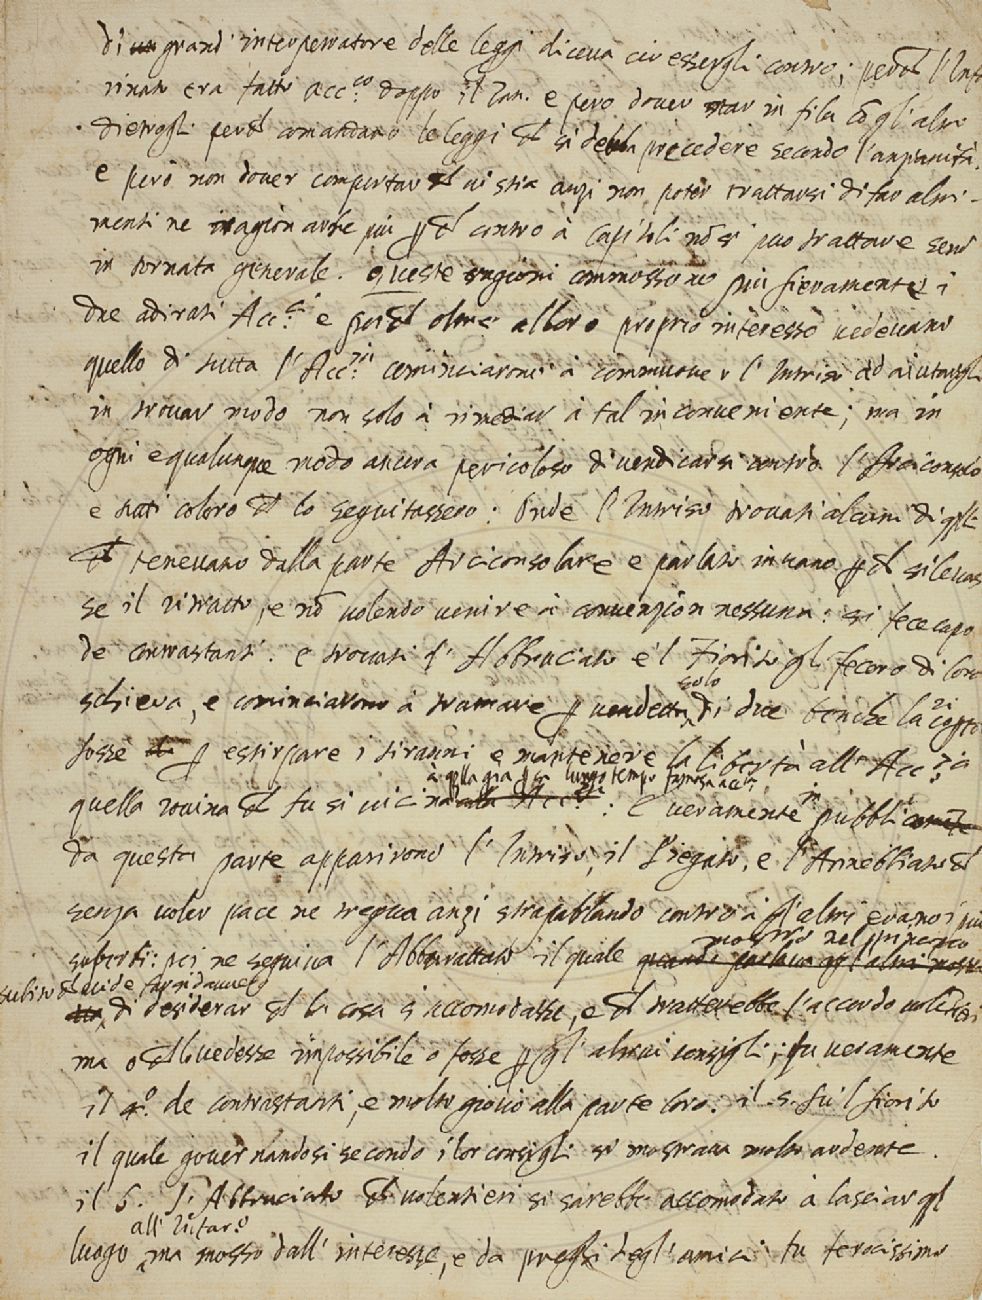 di un grand' interpetratore delle leggi diceva ciò essergli contro; però l'Infe
rinato era fatto Acc.co doppo il Zan. e però dover star in fila cō gl'altri
dietrogli però comandano le leggi ch si debba precedere secondo l'anzianità.
e però non dover comportar ch ui stia anzi non poter trattarsi di far altri-
menti ne ragionarne più p ch contro à Capitoli nō si puo trattare senō
in tornata generale. Queste ragioni commossono più fieramente i
due adirati Acc.ci e oltre al loro proprio interesse uedeuano
quello di tutta l'Acc.a cominciarono à commuouer l'Intriso ad aiutargli
in trouar modo non solo à rimediar à tal inconueniente; ma in
ogni e qualunque modo ancora pericoloso di uendicarsi contro l'Arciconsolo
e tutti coloro ch lo seguitassero: Onde l'Intriso trouati alcuni di qlli
ch teneuano dalla parte Arciconsolare e parlato in uano p ch si leuas
se il ritratto, e nō uolendo uenire à conuenzion nessuna: si fece capo
de contrastanti. e trouati l'Abbruciato e 'l Fiorito gli fecero di loro
schiera, e cominciarono à tramare p uendetta solo di due benche la
fosse p estirpare i tiranni e mantenere la libertà all' Acc.a
quella rouina ch fu si uicina a qlla gia p sì lungo tempo famosa Acc.a: E ueramente in pubblico
da questa parte apparirono l'Intriso, il Fregato, e l'Annebbiato ch
senza uoler pace ne tregua anzi straparlando contro à gl'altri erano i piu
superbi: poi ne seguiua l'Abburattato il quale mostrò nel principio
subito ch uide di desiderar ch la cosa s'accomodasse, e ch tratterebbe l'accordo uolētieri
ma o ch lo uedesse impossibile o fosse p gl'altrui consigli; fu ueramente
il 4.o de contrastanti, e molto giouò alla parte loro. il 5. fu 'l fiorito
il quale gouernandosi secondo i lor consigli si mostraua molto ardente.
il 6. l'Abbruciato ch uolentieri si sarebbe accomodato à lasciar ql
luogo all' Infar.o ma mosso dall' interesse, e da preghi degl' amici fu ferocissimo